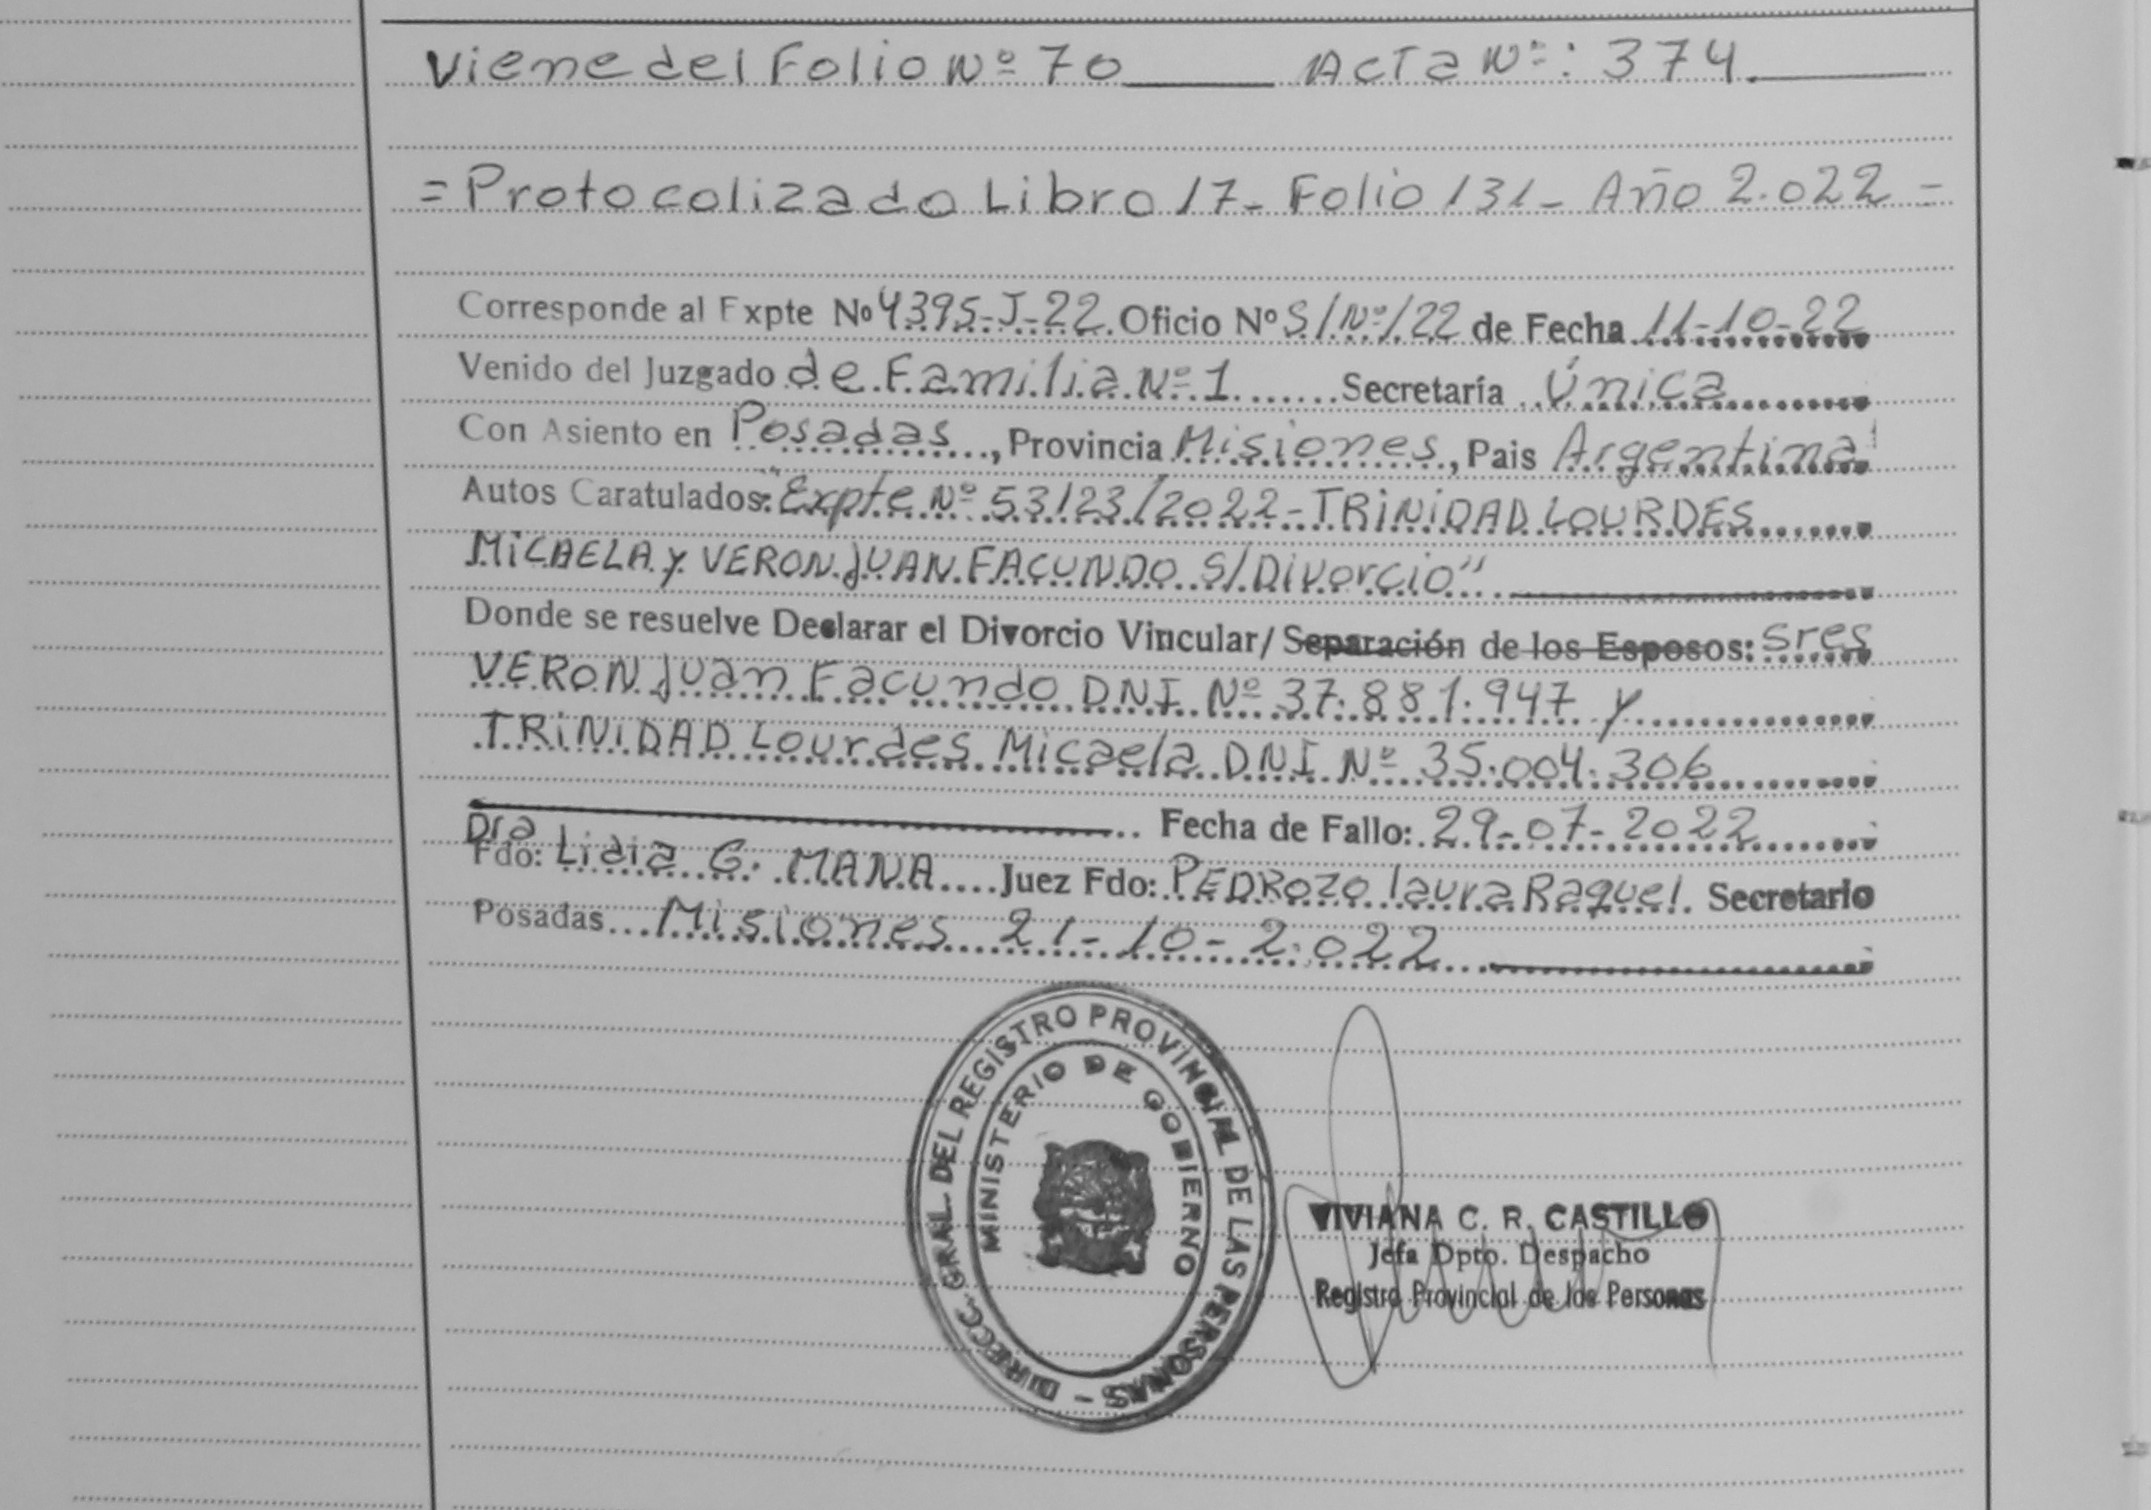 Viene del Folio Nº 70 Acta Nº: 374.
= Protocolizado Libro 17- Folio 131- Año 2.022 =
Corresponde al Expte Nº 4395-J-22. Oficio Nº S/Nº/22 de Fecha 11-10-22
Venido del Juzgado de Familia Nº 1 Secretaría Única
Con Asiento en Posadas, Provincia Misiones, Pais Argentina
Autos Caratulados: "Expte Nº 53123/2022- TRINIDAD LOURDES
MICAELA y VERON JUAN FACUNDO S/Divorcio"
Donde se resuelve Declarar el Divorcio Vincular/ Separación de los Esposos: Sres
VERON Juan Facundo DNI Nº 37.881.947 y
TRINIDAD Lourdes Micaela DNI Nº 35.004.306
Fecha de Fallo: 29-07-2022
Dra
Fdo: Lidia G. MANA Juez Fdo: PEDROZO laura Raquel. Secretario
Posadas Misiones 21-10-2.022
DIRECC. GRAL. DEL REGISTRO PROVINCIAL DE LAS PERSONAS -
MINISTERIO DE GOBIERNO
VIVIANA C. R. CASTILLO
Jefa Dpto. Despacho
Registro Provincial de las Personas